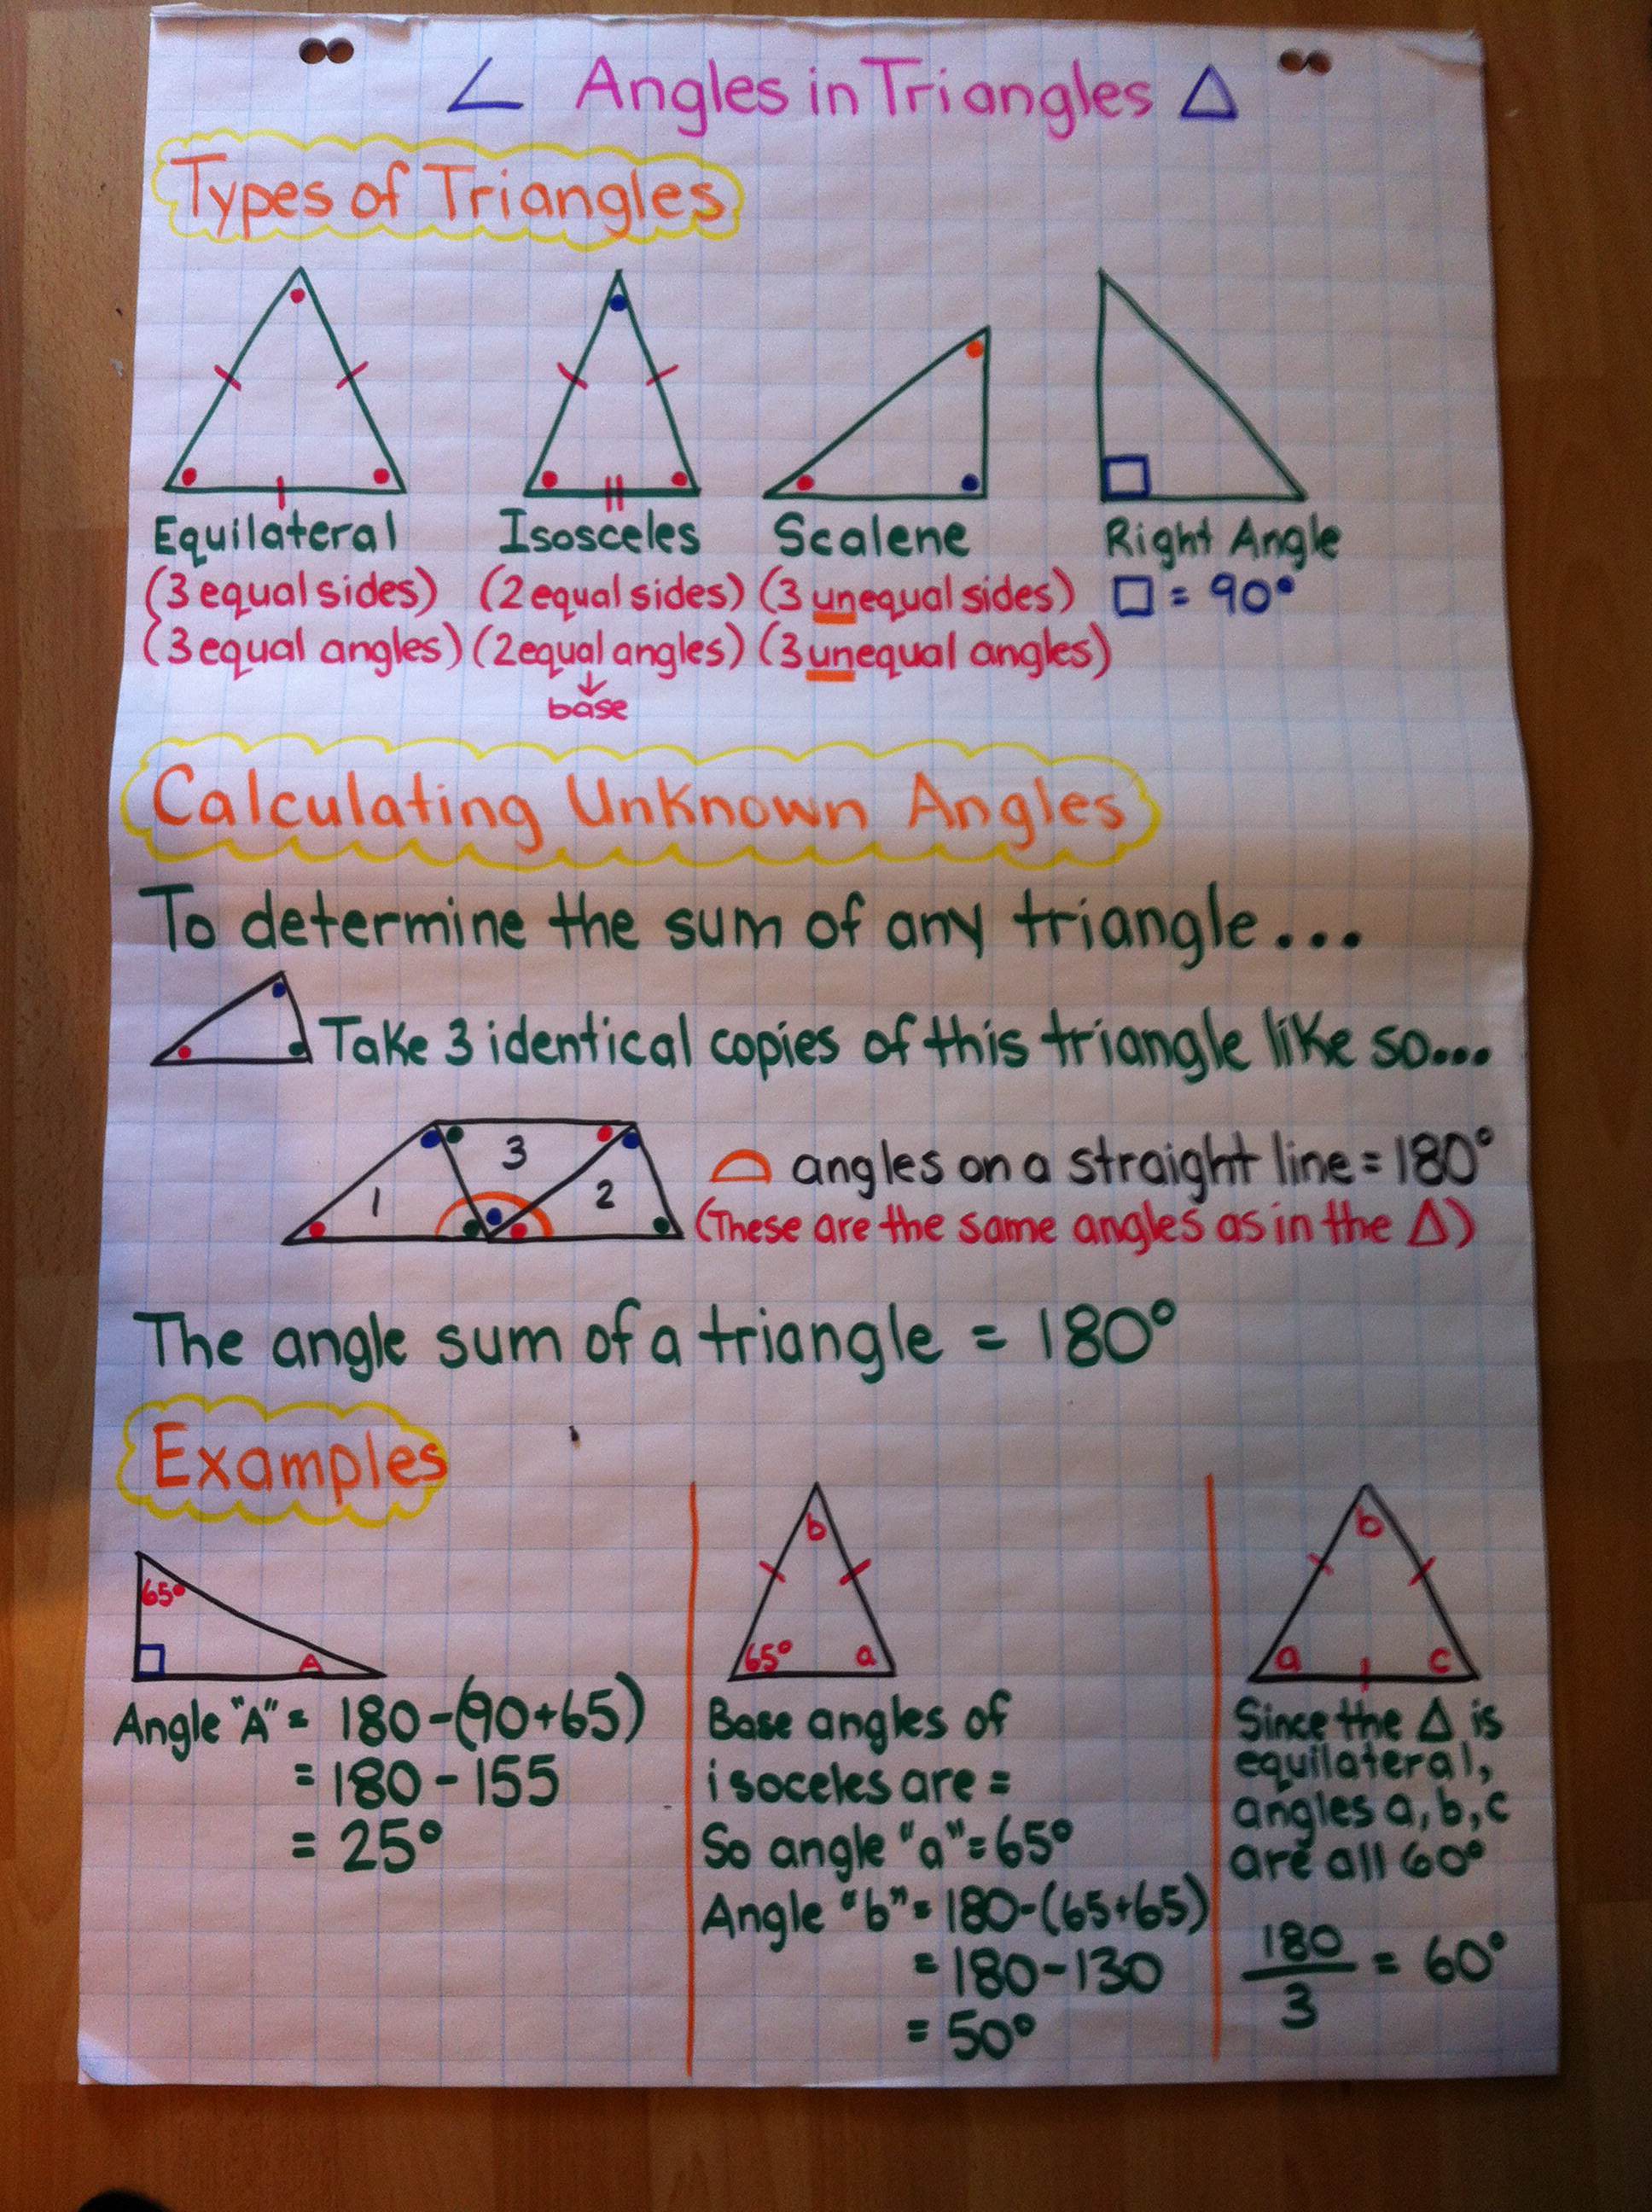 ∠ Angles in Triangles △
Types of Triangles
Equilateral
(3 equal sides)
(3 equal angles)
Isosceles
(2 equal sides)
(2 equal angles)
↓
base
Scalene
(3 unequal sides)
(3 unequal angles)
Right Angle
□ = 90°
Calculating Unknown Angles
To determine the sum of any triangle...
Take 3 identical copies of this triangle like so...
1
3
2
angles on a straight line = 180°
(These are the same angles as in the △)
The angle sum of a triangle = 180°
Examples
65°
A
Angle "A" = 180-(90+65)
= 180-155
= 25°
b
65°
a
Base angles of
isoceles are =
So angle "a" = 65°
Angle "b" = 180-(65+65)
= 180-130
= 50°
b
a
c
Since the △ is
equilateral,
angles a, b, c
are all 60°
180
3
= 60°